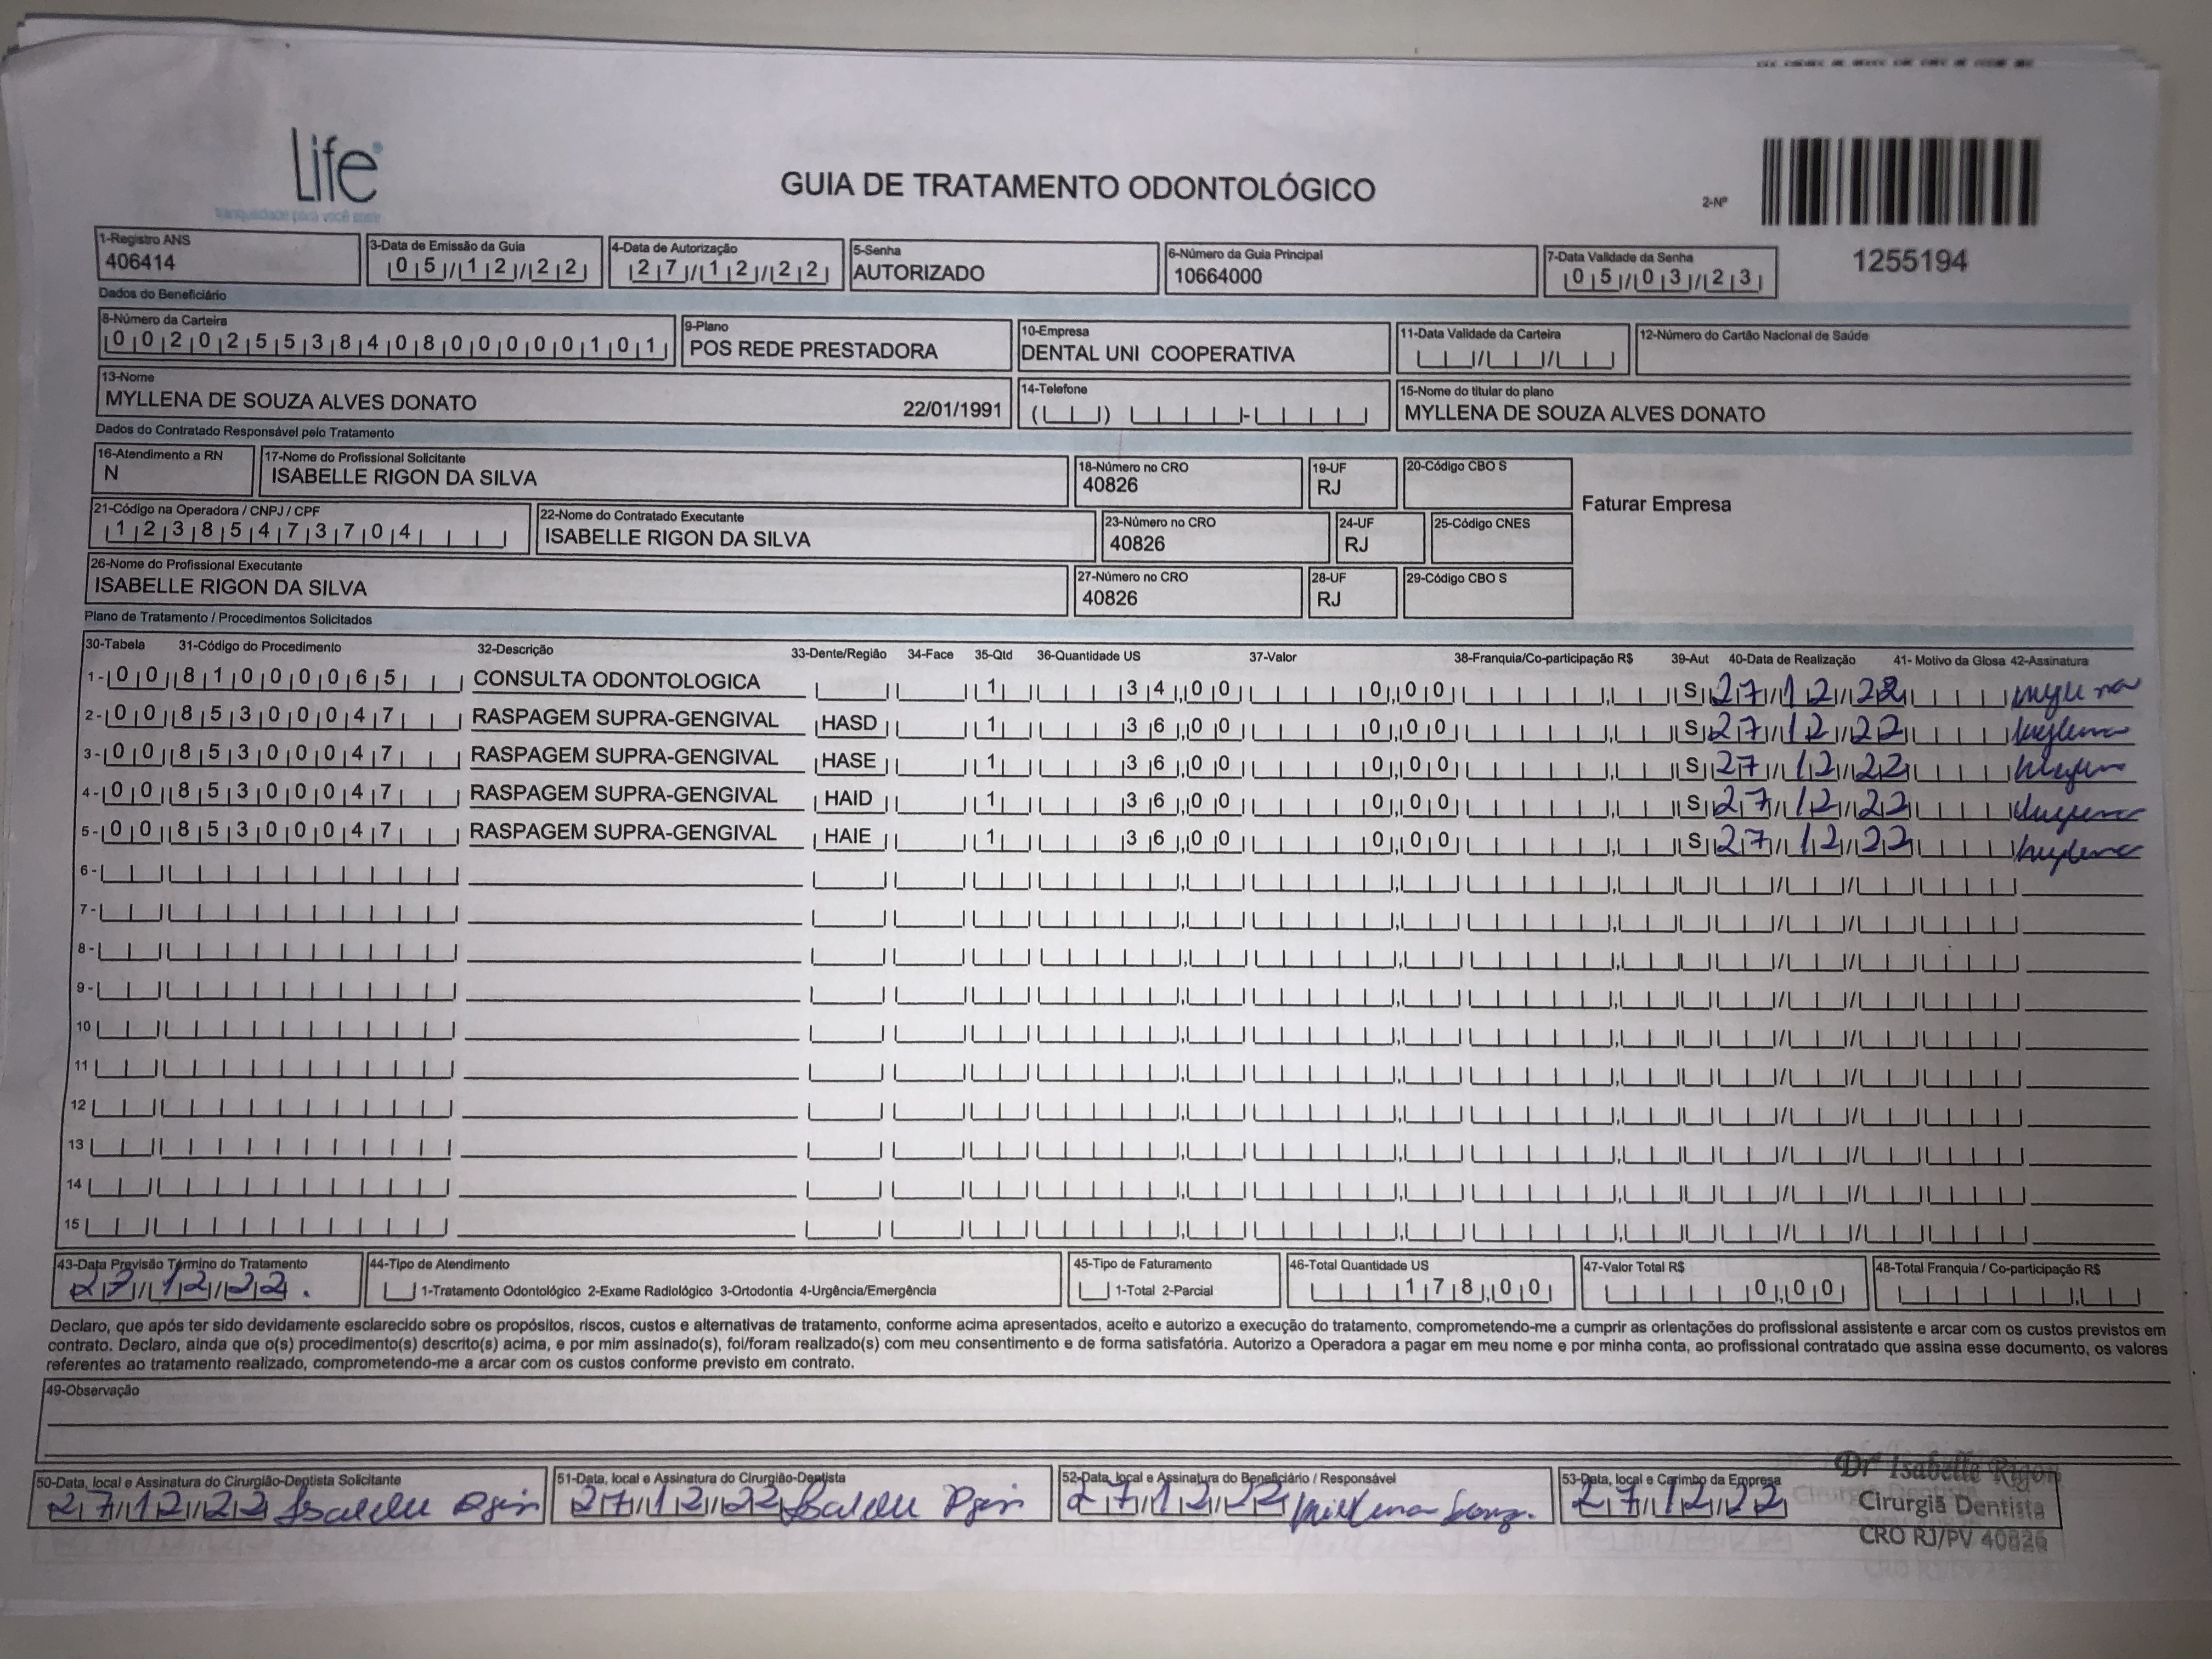 Life
tranquilidade para você sorrir
GUIA DE TRATAMENTO ODONTOLÓGICO
2-Nº
1255194
1-Registro ANS
406414
3-Data de Emissão da Guia
05/12/22
4-Data de Autorização
27/12/22
5-Senha
AUTORIZADO
6-Número da Guia Principal
10664000
7-Data Validade da Senha
05/03/23
Dados do Beneficiário
8-Número da Carteira
00202553840800000101
9-Plano
POS REDE PRESTADORA
10-Empresa
DENTAL UNI COOPERATIVA
11-Data Validade da Carteira
12-Número do Cartão Nacional de Saúde
13-Nome
MYLLENA DE SOUZA ALVES DONATO 22/01/1991
14-Telefone
15-Nome do titular do plano
MYLLENA DE SOUZA ALVES DONATO
Dados do Contratado Responsável pelo Tratamento
16-Atendimento a RN
N
17-Nome do Profissional Solicitante
ISABELLE RIGON DA SILVA
18-Número no CRO
40826
19-UF
RJ
20-Código CBO S
Faturar Empresa
21-Código na Operadora / CNPJ / CPF
12385473704
22-Nome do Contratado Executante
ISABELLE RIGON DA SILVA
23-Número no CRO
40826
24-UF
RJ
25-Código CNES
26-Nome do Profissional Executante
ISABELLE RIGON DA SILVA
27-Número no CRO
40826
28-UF
RJ
29-Código CBO S
Plano de Tratamento / Procedimentos Solicitados
30-Tabela 31-Código do Procedimento 32-Descrição 33-Dente/Região 34-Face 35-Qtd 36-Quantidade US 37-Valor 38-Franquia/Co-participação R$ 39-Aut 40-Data de Realização 41- Motivo da Glosa 42-Assinatura
1- 00 81000065 CONSULTA ODONTOLOGICA 1 34,00 0,00 S 27/12/22
2- 00 85300047 RASPAGEM SUPRA-GENGIVAL HASD 1 36,00 0,00 S 27/12/22
3- 00 85300047 RASPAGEM SUPRA-GENGIVAL HASE 1 36,00 0,00 S 27/12/22
4- 00 85300047 RASPAGEM SUPRA-GENGIVAL HAID 1 36,00 0,00 S 27/12/22
5- 00 85300047 RASPAGEM SUPRA-GENGIVAL HAIE 1 36,00 0,00 S 27/12/22
6-
7-
8-
9-
10
11
12
13
14
15
43-Data Previsão Término do Tratamento
27/12/22.
44-Tipo de Atendimento
1-Tratamento Odontológico 2-Exame Radiológico 3-Ortodontia 4-Urgência/Emergência
45-Tipo de Faturamento
1-Total 2-Parcial
46-Total Quantidade US
178,00
47-Valor Total R$
0,00
48-Total Franquia / Co-participação R$
Declaro, que após ter sido devidamente esclarecido sobre os propósitos, riscos, custos e alternativas de tratamento, conforme acima apresentados, aceito e autorizo a execução do tratamento, comprometendo-me a cumprir as orientações do profissional assistente e arcar com os custos previstos em
contrato. Declaro, ainda que o(s) procedimento(s) descrito(s) acima, e por mim assinado(s), foi/foram realizado(s) com meu consentimento e de forma satisfatória. Autorizo a Operadora a pagar em meu nome e por minha conta, ao profissional contratado que assina esse documento, os valores
referentes ao tratamento realizado, comprometendo-me a arcar com os custos conforme previsto em contrato.
49-Observação
50-Data, local e Assinatura do Cirurgião-Dentista Solicitante
27/12/22
51-Data, local e Assinatura do Cirurgião-Dentista
27/12/22
52-Data, local e Assinatura do Beneficiário / Responsável
27/12/22
53-Data, local e Carimbo da Empresa
27/12/22
Drª Isabelle Rigon
Cirurgiã Dentista
CRO RJ/PV 40826